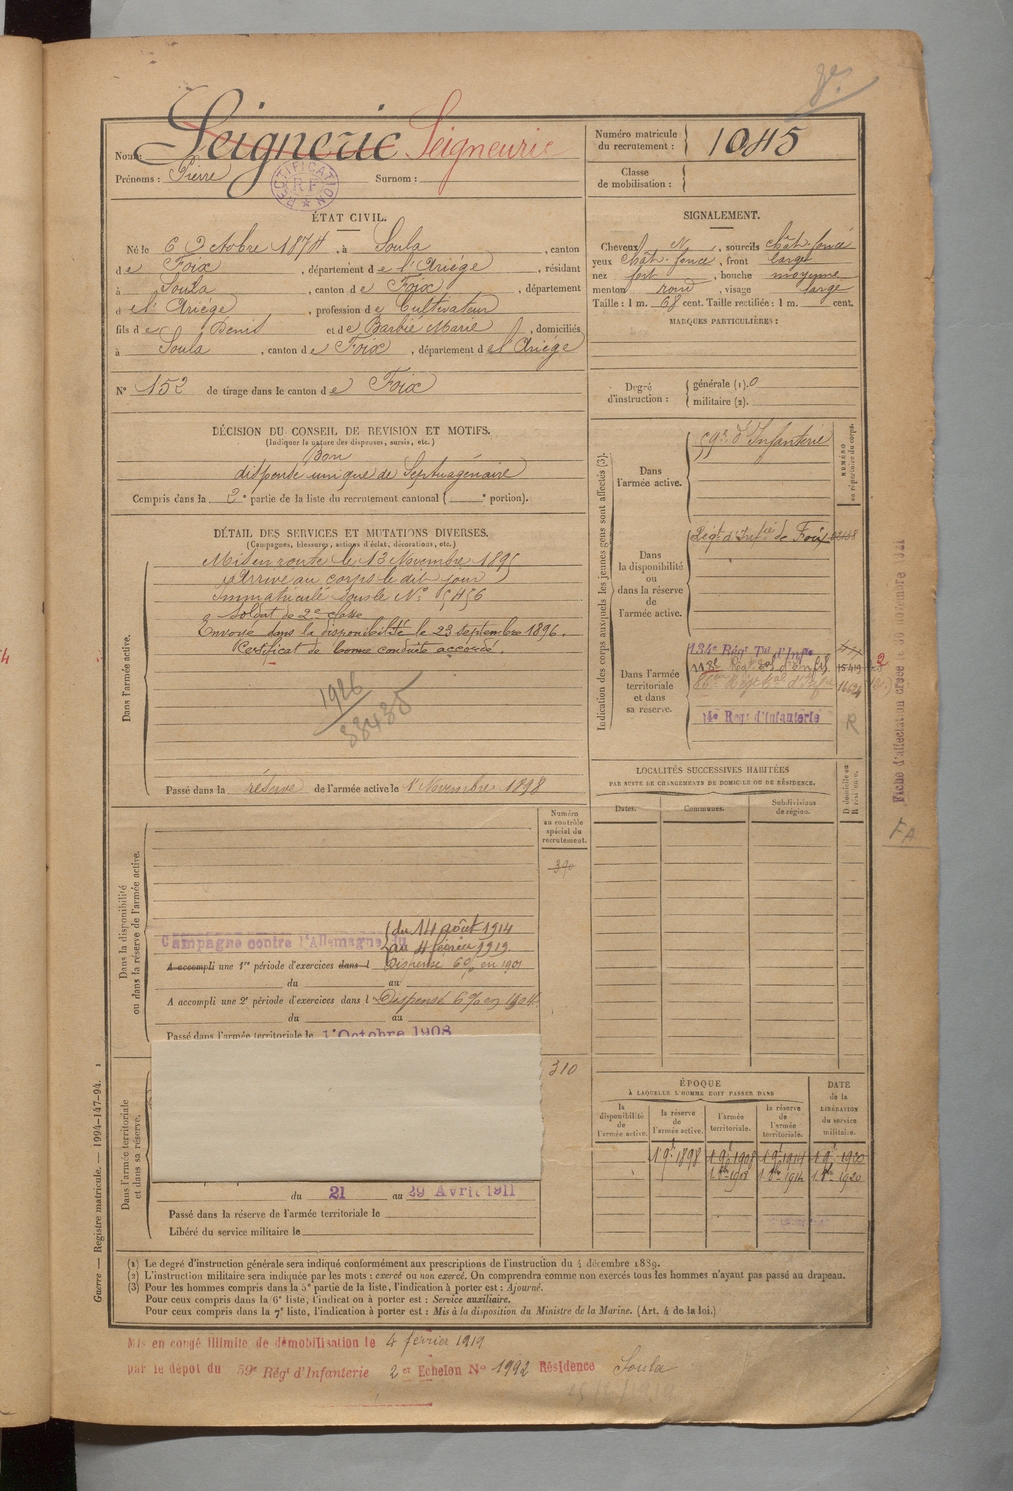 Nom: Seignerie Seigneurie
Prénoms : Pierre Surnom :
RECTIFICATION RF
Numéro matricule du recrutement : 1045
Classe de mobilisation :
ÉTAT CIVIL.
Né le 6 Octobre 1874, à Soula, canton
de Foix, département de l'Ariège, résidant
à Soula, canton de Foix, département
d e l'Ariège, profession de Cultivateur
fils de Denis et de Barbié Marie, domiciliés
à Soula, canton de Foix, département de l'Ariége
N° 152 de tirage dans le canton de Foix
SIGNALEMENT.
Cheveux N, sourcils chât. foncé
yeux chât. foncé, front large
nez fort, bouche moyenne
menton rond, visage large
Taille : 1 m. 68 cent. Taille rectifiée : 1 m. cent.
MARQUES PARTICULIÈRES :
Degré d'instruction : générale (1). 0
militaire (2).
DÉCISION DU CONSEIL DE REVISION ET MOTIFS.
(Indiquer la nature des dispenses, sursis, etc.)
Bon
dispensé unique de Septuagénaire
Compris dans la 2e partie de la liste du recrutement cantonal ( e portion).
DÉTAIL DES SERVICES ET MUTATIONS DIVERSES.
(Campagnes, blessures, actions d'éclat, décorations, etc.)
Dans l'armée active.
Mis en route le 13 Novembre 1895
Arrivé au corps le dit jour
Immatriculé sous le N° 5456
Soldat de 2e classe
Envoyé dans la disponibilité le 23 septembre 1896.
Certificat de bonne conduite accordé.
1926
88435
Passé dans la réserve de l'armée active le 1er Novembre 1898
Indication des corps auxquels les jeunes gens sont affectés (3).
NUMÉRO au répertoire du corps.
Dans l'armée active.
59e d'Infanterie
Dans la disponibilité ou dans la réserve de l'armée active.
Régt d'Infrie de Foix
Dans l'armée territoriale et dans sa réserve.
134e Régt Tal d'Infie
14e Regt d'Infanterie R
Fiche d'affectation créée le 30 novembre 1921
FA
LOCALITÉS SUCCESSIVES HABITÉES
PAR SUITE DE CHANGEMENTS DE DOMICILE OU DE RÉSIDENCE.
Dates. Communes. Subdivisions de région. D domicile ou R résidence.
Dans la disponibilité ou dans la réserve de l'armée active.
Numéro au contrôle spécial du recrutement.
390
Campagne contre l'Allemagne du
du 14 août 1914
au 4 février 1919
A accompli une 1re période d'exercices dans l Dispensé 6% en 1901
du au
A accompli une 2e période d'exercices dans l Dispensé 6% en 1904
du au
Passé dans l'armée territoriale le 1er Octobre 1908
310
Dans l'armée territoriale et dans sa réserve.
du 21 au 29 Avril 1911
Passé dans la réserve de l'armée territoriale le
Libéré du service militaire le
ÉPOQUE
À LAQUELLE L'HOMME DOIT PASSER DANS
DATE de la LIBÉRATION du service militaire.
la disponibilité de l'armée active. la réserve de l'armée active. l'armée territoriale. la réserve de l'armée territoriale.
1 9bre 1898 1 9bre 1908 1 9bre 1914 1 9bre 1920
1 8bre 1908 1 8bre 1914 1 8bre 1920
Guerre — Registre matricule. — 1994-147-94. 1
(1) Le degré d'instruction générale sera indiqué conformément aux prescriptions de l'instruction du 4 décembre 1889.
(2) L'instruction militaire sera indiquée par les mots : exercé ou non exercé. On comprendra comme non exercés tous les hommes n'ayant pas passé au drapeau.
(3) Pour les hommes compris dans la 5e partie de la liste, l'indication à porter est : Ajourné.
Pour ceux compris dans la 6e liste, l'indication à porter est : Service auxiliaire.
Pour ceux compris dans la 7e liste, l'indication à porter est : Mis à la disposition du Ministre de la Marine. (Art. 4 de la loi.)
Mis en congé illimité de démobilisation le 4 février 1919
par le dépôt du 59e Régt d'Infanterie 2e Echelon N° 1992 Résidence Soula